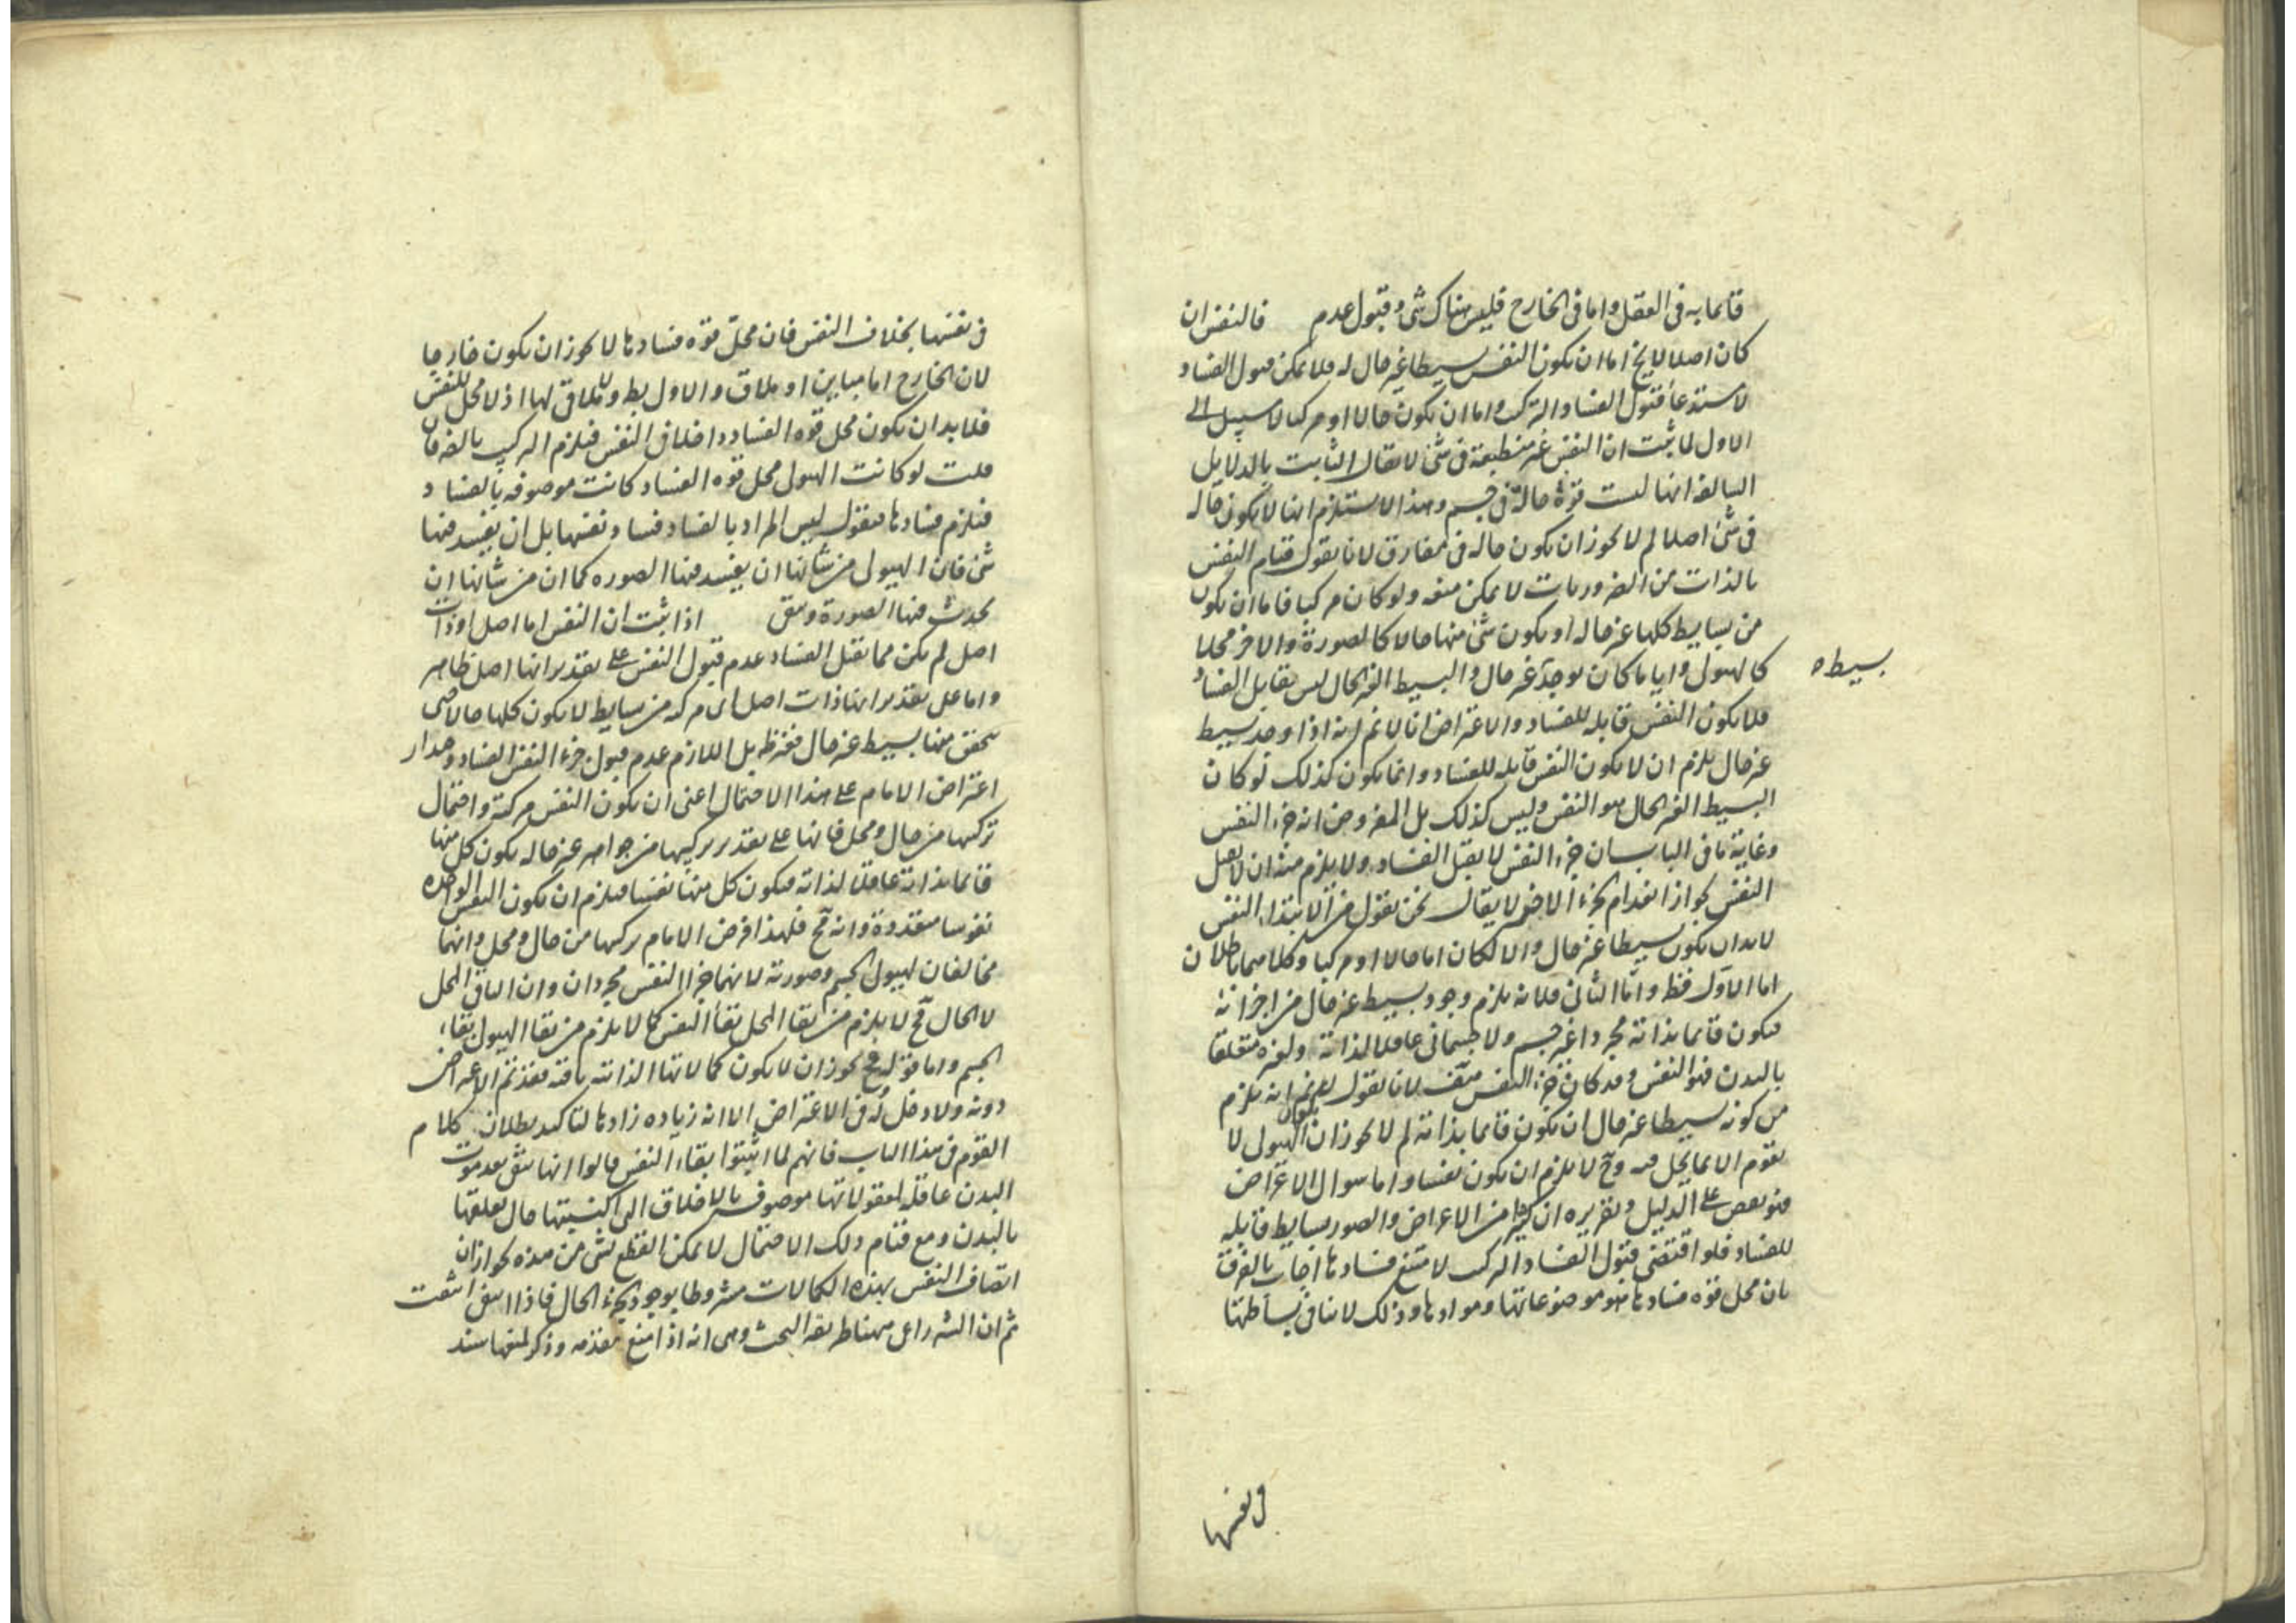 قائما به فى العقل واما فى الخارج فليس هناك شئ وقبول عدم فالنفس ان
كان اصلا لا يخ اما ان يكون النفس بسيطا غير حال له فلا يمكن قبول الفساد
لاستدعاء قبول الفساد التركب واما ان يكون حالا او مركبا لا سبيل الى
الاول لما ثبت ان النفس غير منطبعة فى شئ لا يقال الثابت بالدلايل
السالفة انها ليست قوة حالة فى جسم وهذا لا يستلزم انها لا يكون حاله
فى شئ اصلا لم لا يجوز ان يكون حاله فى مفارق لانا نقول قيام النفس
بالذات من الضروريات لا يمكن منعه ولو كان مركبا فاما ان يكون
من بسايط كلها غير حاله او يكون شئ منها حالا كالصورة والاخر محلا
كالهيولى واياما كان يوجد غير حال والبسيط الغير الحال ليس بقابل الفساد
بسيطه
فلا يكون النفس قابله للفساد والاعتراض انا لا نم انه اذا وجد بسيط
غير حال يلزم ان لا يكون النفس قابله للفساد وانما يكون كذلك لو كان
البسيط الغير الحال هو النفس وليس كذلك بل المفروض انه جزء النفس
وغاية ما فى الباب بيان جزء النفس لا يقبل الفساد ولا يلزم منه ان لا يقبل
النفس لجواز انعدام الجزء الاخر لا يقال نحن نقول من الابتداء النفس
لا بد ان يكون بسيطا غير حال والا لكان اما حالا او مركبا وكلاهما باطلان
اما الاول فظ واما الثانى فلانه يلزم وجود بسيط غير حال من اجزائه
فيكون قائما بذاته مجردا غير جسم ولا جسمانى عاقلا لذاته ولغيره متعلقا
بالبدن فهو النفس وقد كان جزء النفس هف لانا نقول لا نم انه يلزم
من كونه بسيطا غير حال ان يكون قائما بذاته لم لا يجوز ان يكون كالهيولى لا
يقوم الا بما يحل فيه وح لا يلزم ان يكون نفسا واما سوال الاعتراض
فهو نقض على الدليل وتقريره ان كثيرا من الاعراض والصور بسايط قابله
للفساد فلو اقتضى قبول الفساد التركب لامتنع فسادها اجاب بالفرق
بان محل قوة فسادها هو موضوعاتها وموادها وذلك لا ينافى بساطتها
فى نفسها
فى نفسها بخلاف النفس فان محل قوة فسادها لا يجوز ان يكون خارجا
لان الخارج اما مباين او ملاق والاول بط ولا ملاق لها اذ لا محل للنفس
فلا بد ان يكون محل قوة الفساد داخلا فى النفس فيلزم التركيب بالضرورة فان
قلت لو كانت الهيولى محل قوة الفساد كانت موصوفه بالفساد
فيلزم فسادها فنقول ليس المراد بالفساد فساد نفسها بل ان يفسد فيها
شئ فان الهيولى من شانها ان يفسد فيها الصوره كما ان من شانها ان
يحدث فيها الصورة وتبقى اذا ثبت ان النفس اما اصل او ذات
اصل لم يكن مما يقبل الفساد عدم قبول النفس على تقدير انها اصل ظاهر
واما على تقدير انها ذات اصل اى مركبه من بسايط لا يكون كلها حالا حتى
يتحقق منها بسيط غير حال فغير ظ بل اللازم عدم قبول جزء النفس الفساد
اعتراض الامام على هذا الاحتمال اعنى ان يكون النفس مركبة واحتمال
تركبها من حال ومحل فانها على تقدير تركيبها من جواهر غير حاله يكون كل منها
قائما بذاته عاقلا لذاته فيكون كل منها نفسا فيلزم ان يكون النفس الواحده
نفوسا متعددة وانه مح فلهذا فرض الامام تركيبها من حال ومحل وانهما
مخالفان لهيولى الجسم وصورته لانهما جزءا النفس مجردان وان الباقى المحل
لا الحال فح لا يلزم من بقا المحل بقاء النفس كما لا يلزم من بقا الهيولى بقاء
الجسم واما قوله فح يجوز ان لا يكون كمالاتها الذاتيه باقيه فقد تم الاعتراض
دونه ولا دخل له فى الاعتراض الا انه زياده زادها لتاكيد بطلان كلام
القوم فى هذا الباب فانهم لما اثبتوا بقاء النفس قالوا انها تبقى بعد موت
البدن عاقله لمعقولاتها موصوفه بالاخلاق التى اكتسبتها حال تعلقها
بالبدن ومع قيام ذلك الاحتمال لا يمكن القطع بشئ من هذه لجواز ان
اتصاف النفس بهذه الكمالات مشروطا بوجود الجزء الحال فاذا انتفى انتفت
ثم ان الشه راعى ههنا طريقه البحث وهى انه اذا منع مقدمه وذكر لمنعها سند